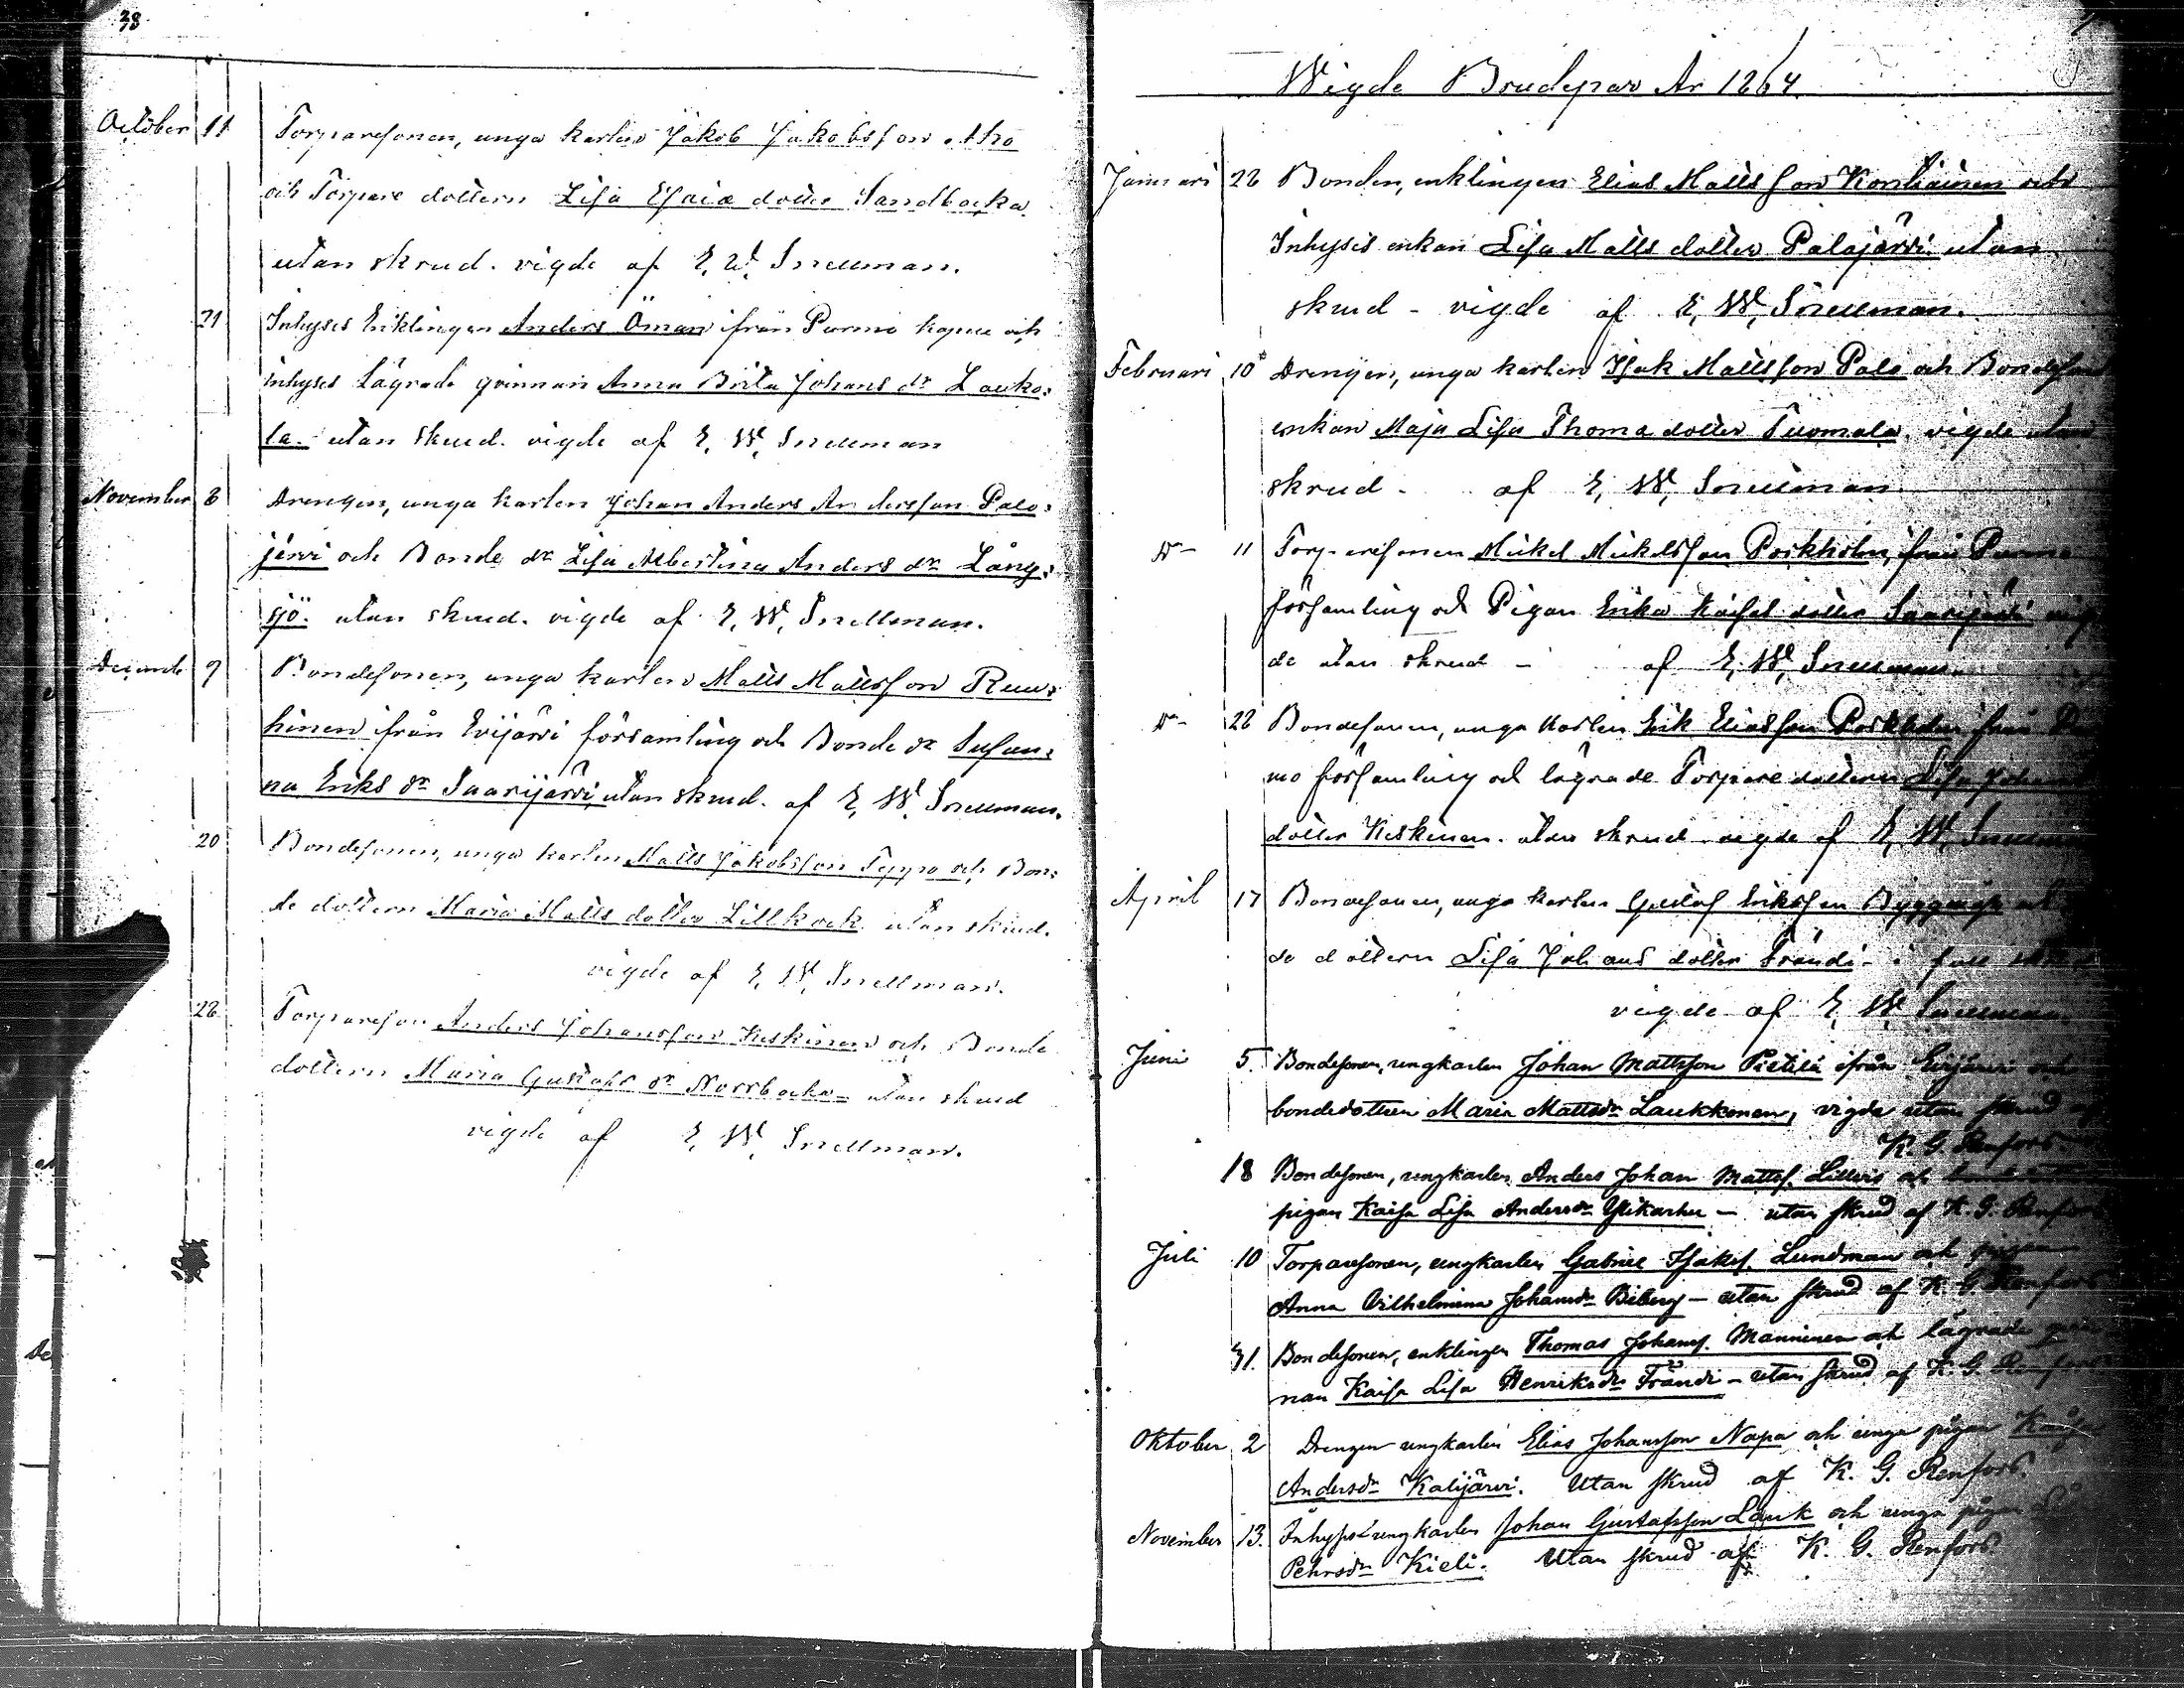 38
October 11 Torparesonen, unga karlen Jakob Jakobsson Aho
och Torpare dottern Lisa Esaiæ dotter Sandbacka
utan skrud. vigde af E. W. Snellman.
21 Inhyses Enklingen Anders Öman från Purmo kapell och
inhyses Lägrade qvinnan Anna Brita Johans dr Lauko:
la. utan skrud. vigde af E. W. Snellman
November 8 Drengen, unga karlen Johan Anders Andersson Palo:
järvi och Bonde dr Lisa Albertina Anders dr Lång:
sjö. utan skrud. vigde af E. W. Snellman.
December 9 Bondesonen, unga karlen Matts Mattsson Ruu:
hinen från Evijärvi församling och Bonde dr Susan:
na Eriks dr Saarijärvi, utan skrud. af E. W. Snellman.
20 Bondesonen, unga karlen Matts Jakobsson Teppo och Bon:
de dottern Maria Matts dotter Lillkack utan skrud.
vigde af E. W. Snellman.
28 Torpareson Anders Johansson Keskinen och Bonde
dottern Maria Gustafs dr Norrbacka - utan skrud
vigde af E. W. Snellman.
Wigde Brudepar År 1864
Januari 28 Bonden, enklingen Elias Matts son Kontiainen och
Inhyses enkan Lisa Matts dotter Palojärvi. utan
skrud - vigde af E. W. Snellman.
Februari 10 Drengen, unga karlen Isak Mattsson Palo och Bondeson
enkan Maja Lisa Thomæ dotter Tuomala. vigde utan
skrud - af E. W. Snellman.
Do 11 Torparesonen Mickel Mickelsson Porkholm, från Purmo
församling och Pigan Erika Kaisas dotter Saarijärvi vig
de utan skrud - af E. W. Snellman.
Do 28 Bondesonen, unga karlen Erik Eliasson från
mo församling och lägrade Torpare dottern Lisa Johans
dotter Keskinen. utan skrud vigde af E. W. Snellman
April 17 Bondesonen, unga karlen Gustaf Eriksson Byggmäst
de dottern Lisa Johans dotter Frändi - i full skrud
vigde af E. W. Snellman.
Juni 5. Bondesonen, ungkarlen Johan Mattsson Pietilä ifrån Evijärvi och
bondedottern Maria Mattsdr Laukkonen, vigde utan skrud af
K. G. Renfors.
18 Bondesonen, ungkarlen Anders Johan Matts. Lillvis och
pigan Kaisa Lisa Andersdr Ylikarhu - utan skrud af K. G. Renfors
Juli 10 Torparesonen, ungkarlen Gabriel Isaks. Lundman och pigan
Anna Vilhelmina Johansdr Biberg - utan skrud af K. G. Renfors
31. Bondesonen, enklingen Thomas Johans. Manninen och lägrade qvin
nan Kaisa Lisa Henriksdr Frändi - utan skrud af K. G. Renfors
Oktober 2 Drengen ungkarlen Elias Johansson Napa och unga pigan Kaisa
Andersdr Kalijärvi. Utan skrud af K. G. Renfors.
November 13. Inhyses ungkarlen Johan Gustafsson Lauk och unga pigan
Pehrsdr Kieli. Utan skrud af K. G. Renfors